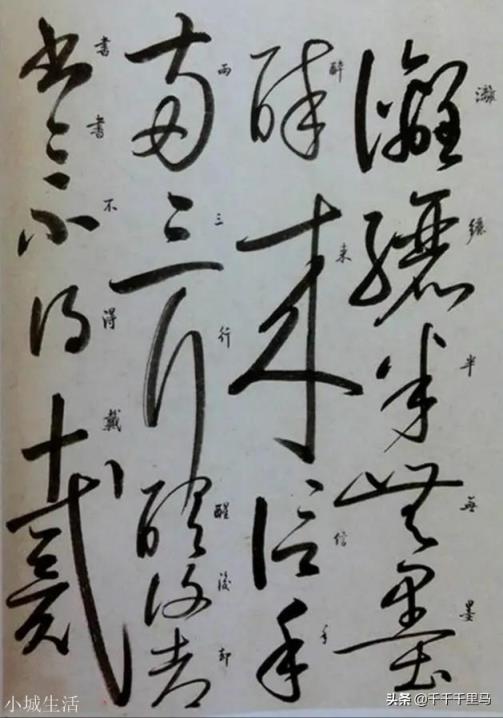 灕纚半無墨
醉来信手
兩三行醒後却
書書不得戴
小城生活
头条 @千千千里马